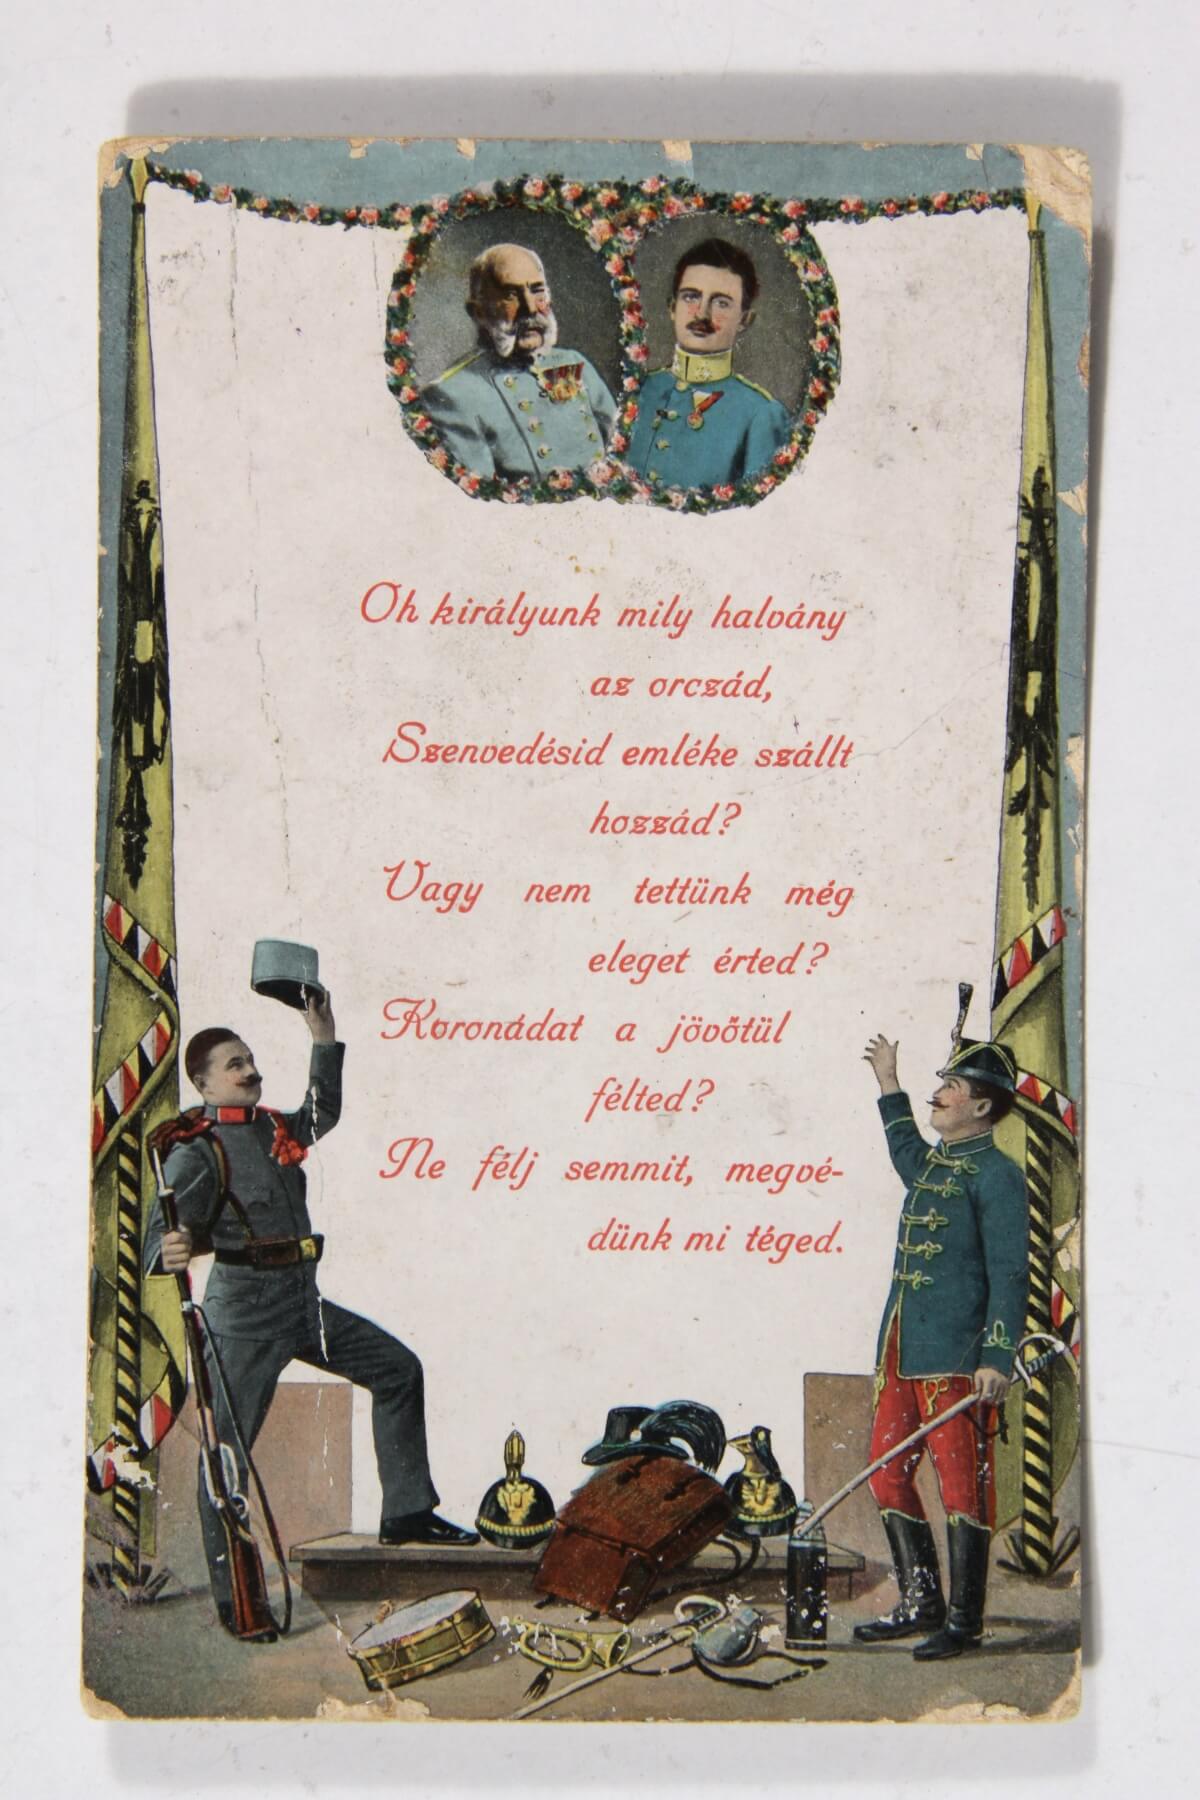 Oh királyunk mily halvány
az orczád,
Szenvedésid emléke szállt
hozzád?
Vagy nem tettünk még
eleget érted?
Koronádat a jövőtül
félted?
Ne félj semmit, megvé-
dünk mi téged.